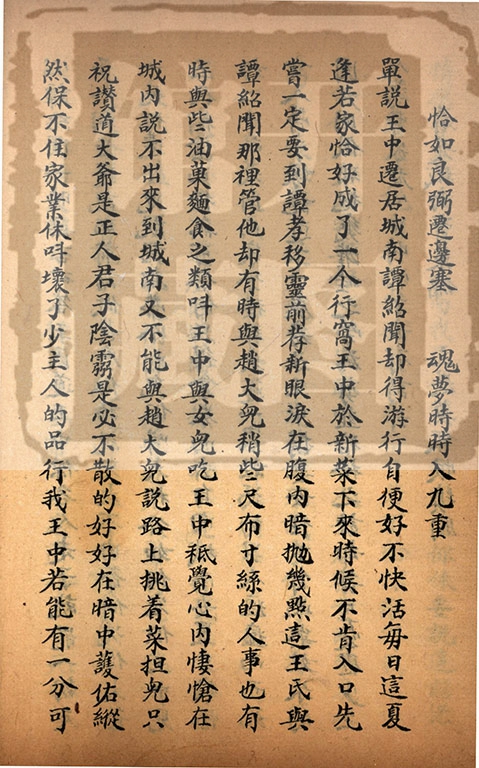 恰如良弼遷邊塞　魂夢時時入九重
單說王中遷居城南譚紹聞却得游行自便好不快活每日這夏
逢若家恰好成了一个行窩王中於新菜下來時候不肯入口先
嘗一定要到譚孝移靈前荐新眼淚在腹内暗拋幾點這王氏與
譚紹聞那裡管他却有時與趙大兒稍些尺布寸絲的人事也有
時與些油菓麵食之類呌王中與女兒吃王中秪覺心内悽愴在
城内說不出來到城南又不能與趙大兒說路上挑着菜担兒只
祝讃道大爺是正人君子陰靈是必不散的好好在暗中護佑縱
然保不住家業休呌壞了少主人的品行我王中若能有一分可